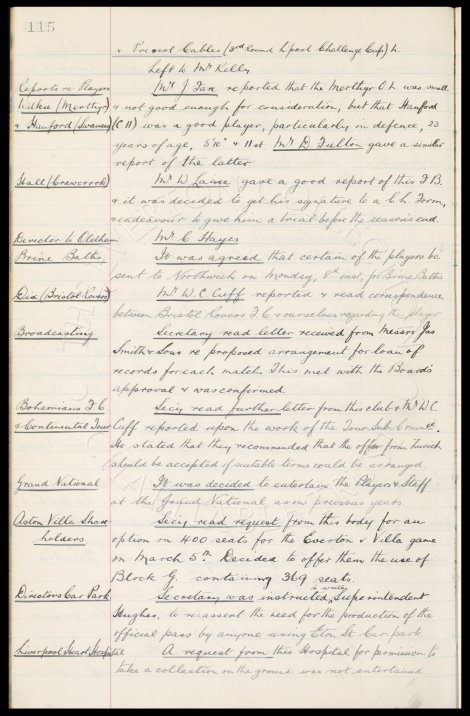 115
v Prescot Cables (3rd Round L'pool Challenge Cup) h.
Left to Mr Kelly
Reports re Players Mr J Fare reported that the Merthyr O.L. was small
Wilkie (Merthyr) & not good enough for consideration, but that Hanford
& Hanford (Swansea) (C H) was a good player, particularly in defence, 23
years of age, 5'10" & 11 st Mr D. Fulton gave a similar
report of the latter
Hall (Crawcrook) Mr W gave a good report of this F.B.
& it was decided to get his signature to a C.L. Form,
& endeavour to give him a trial before the season's end.
Director to Oldham Mr C. Hayes
Brine Baths It was agreed that certain of the players be
sent to Northwich on Monday, 8th inst, for Brine Baths
Dix (Bristol Rovers) Mr W. C. Cuff reported & read correspondence
between Bristol Rovers F C & ourselves regarding the player
Broadcasting Secretary read letter received from Messrs Jas
Smith & Sons re proposed arrangement for loan of
records for each match. This met with the Board's
approval & was confirmed.
Bohemians F.C. Secy read further letter from this club & Mr W C
& Continental Tour Cuff reported upon the work of the Tour Sub Comee.
He stated that they recommended that the offer from Zurich
should be accepted if suitable terms could be arranged
Grand National It was decided to entertain the Players & Staff
at the Grand National as on previous years.
Aston Villa Share Secy read request from this body for an
holders option on 400 seats for the Everton v Villa game
on March 5th. Decided to offer them the use of
Block G. containing 369 seats.
Directors Car Park Secretary was instructed to write Superintendent
Hughes, to re-assert the need for the production of the
official pass by anyone using Eton St Car park
Liverpool Heart Hospital A request from this Hospital for permission to
take a collection on the ground was not entertained.